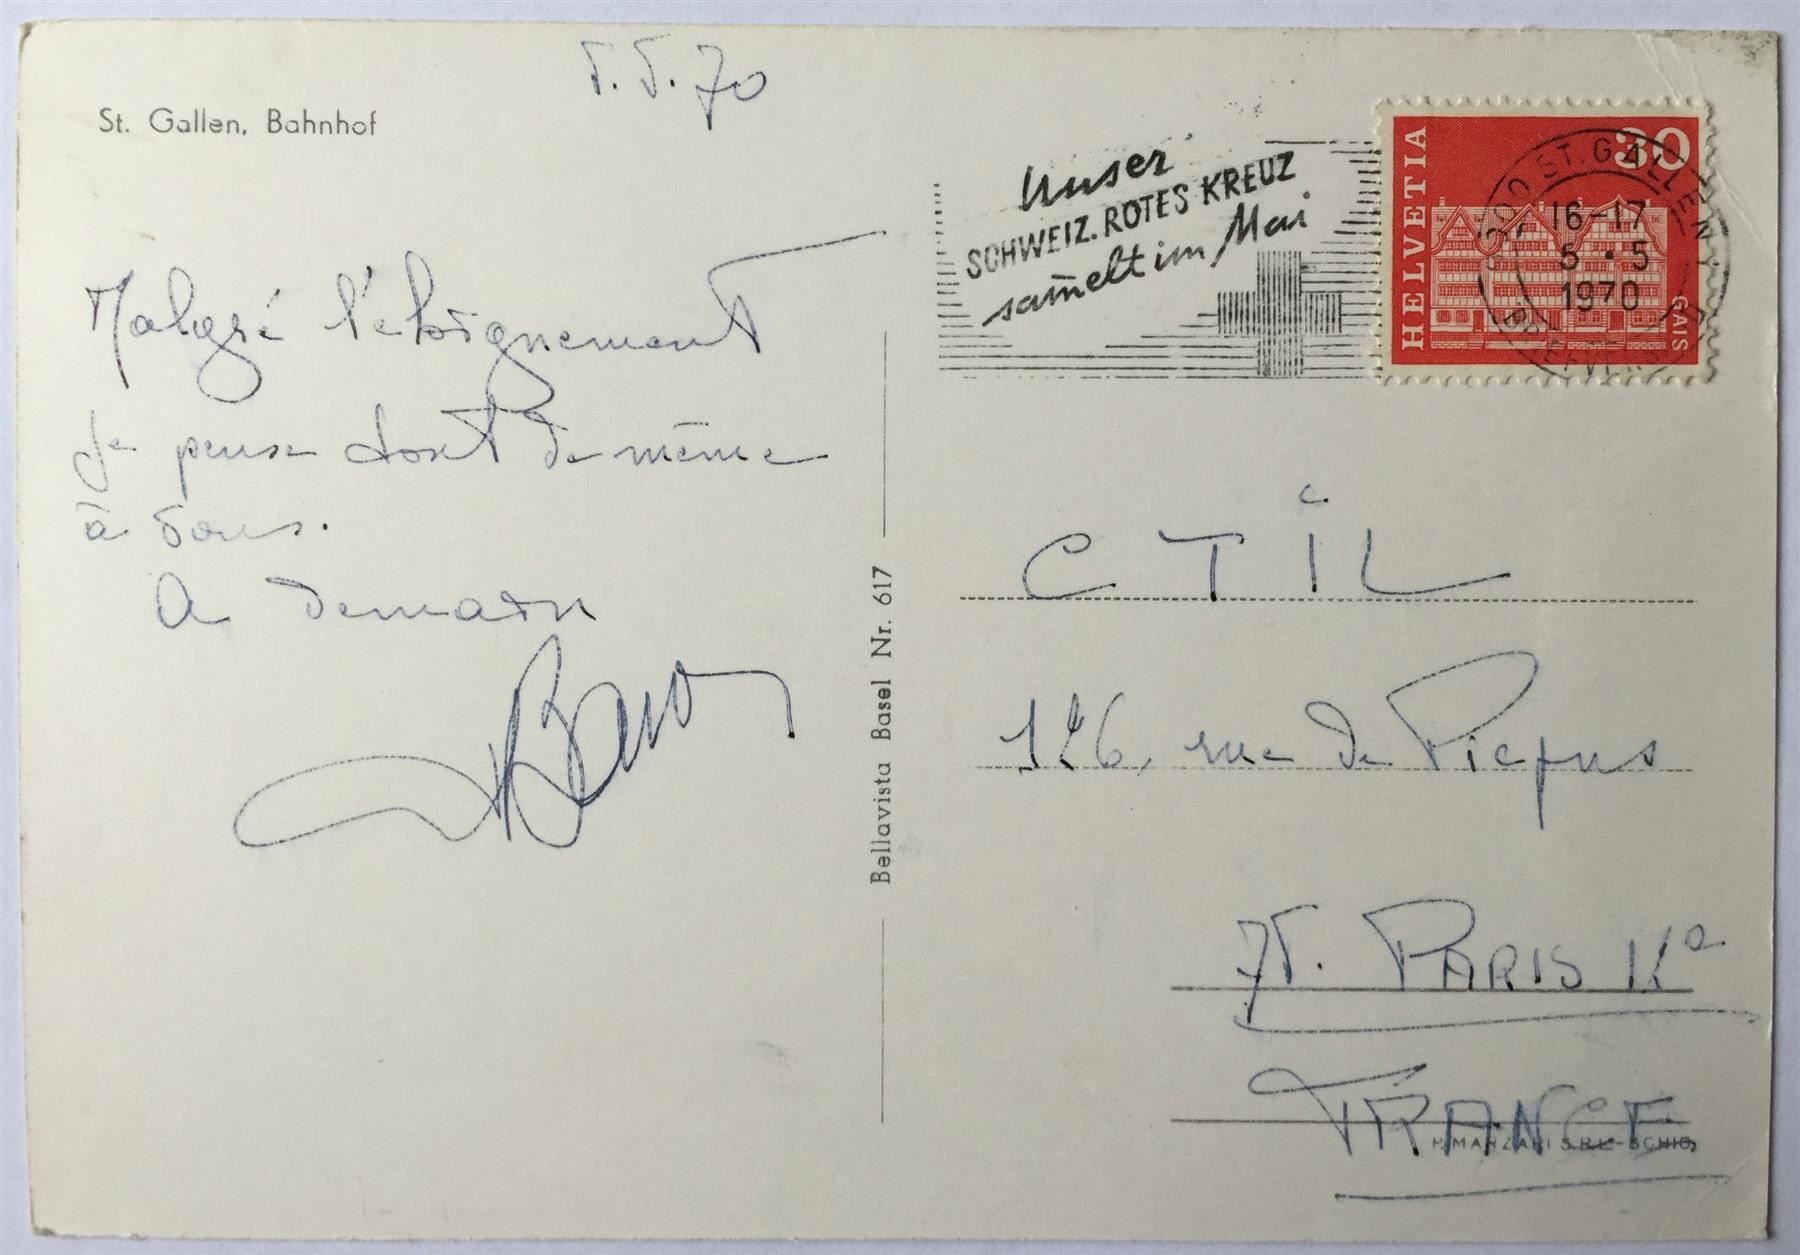 5.5.70
St. Gallen, Bahnhof
Malgré l'éloignement
je pense tout de même
à vous.
A demain
Unser
SCHWEIZ. ROTES KREUZ
sam̄elt im Mai
HELVETIA
30
GAIS
9000 ST. GALLEN 1
16-17
5•5
1970
BRIEFVERSAND
CTIL
126, rue de Picpus
75. PARIS 12e
FRANCE
Bellavista Basel Nr. 617